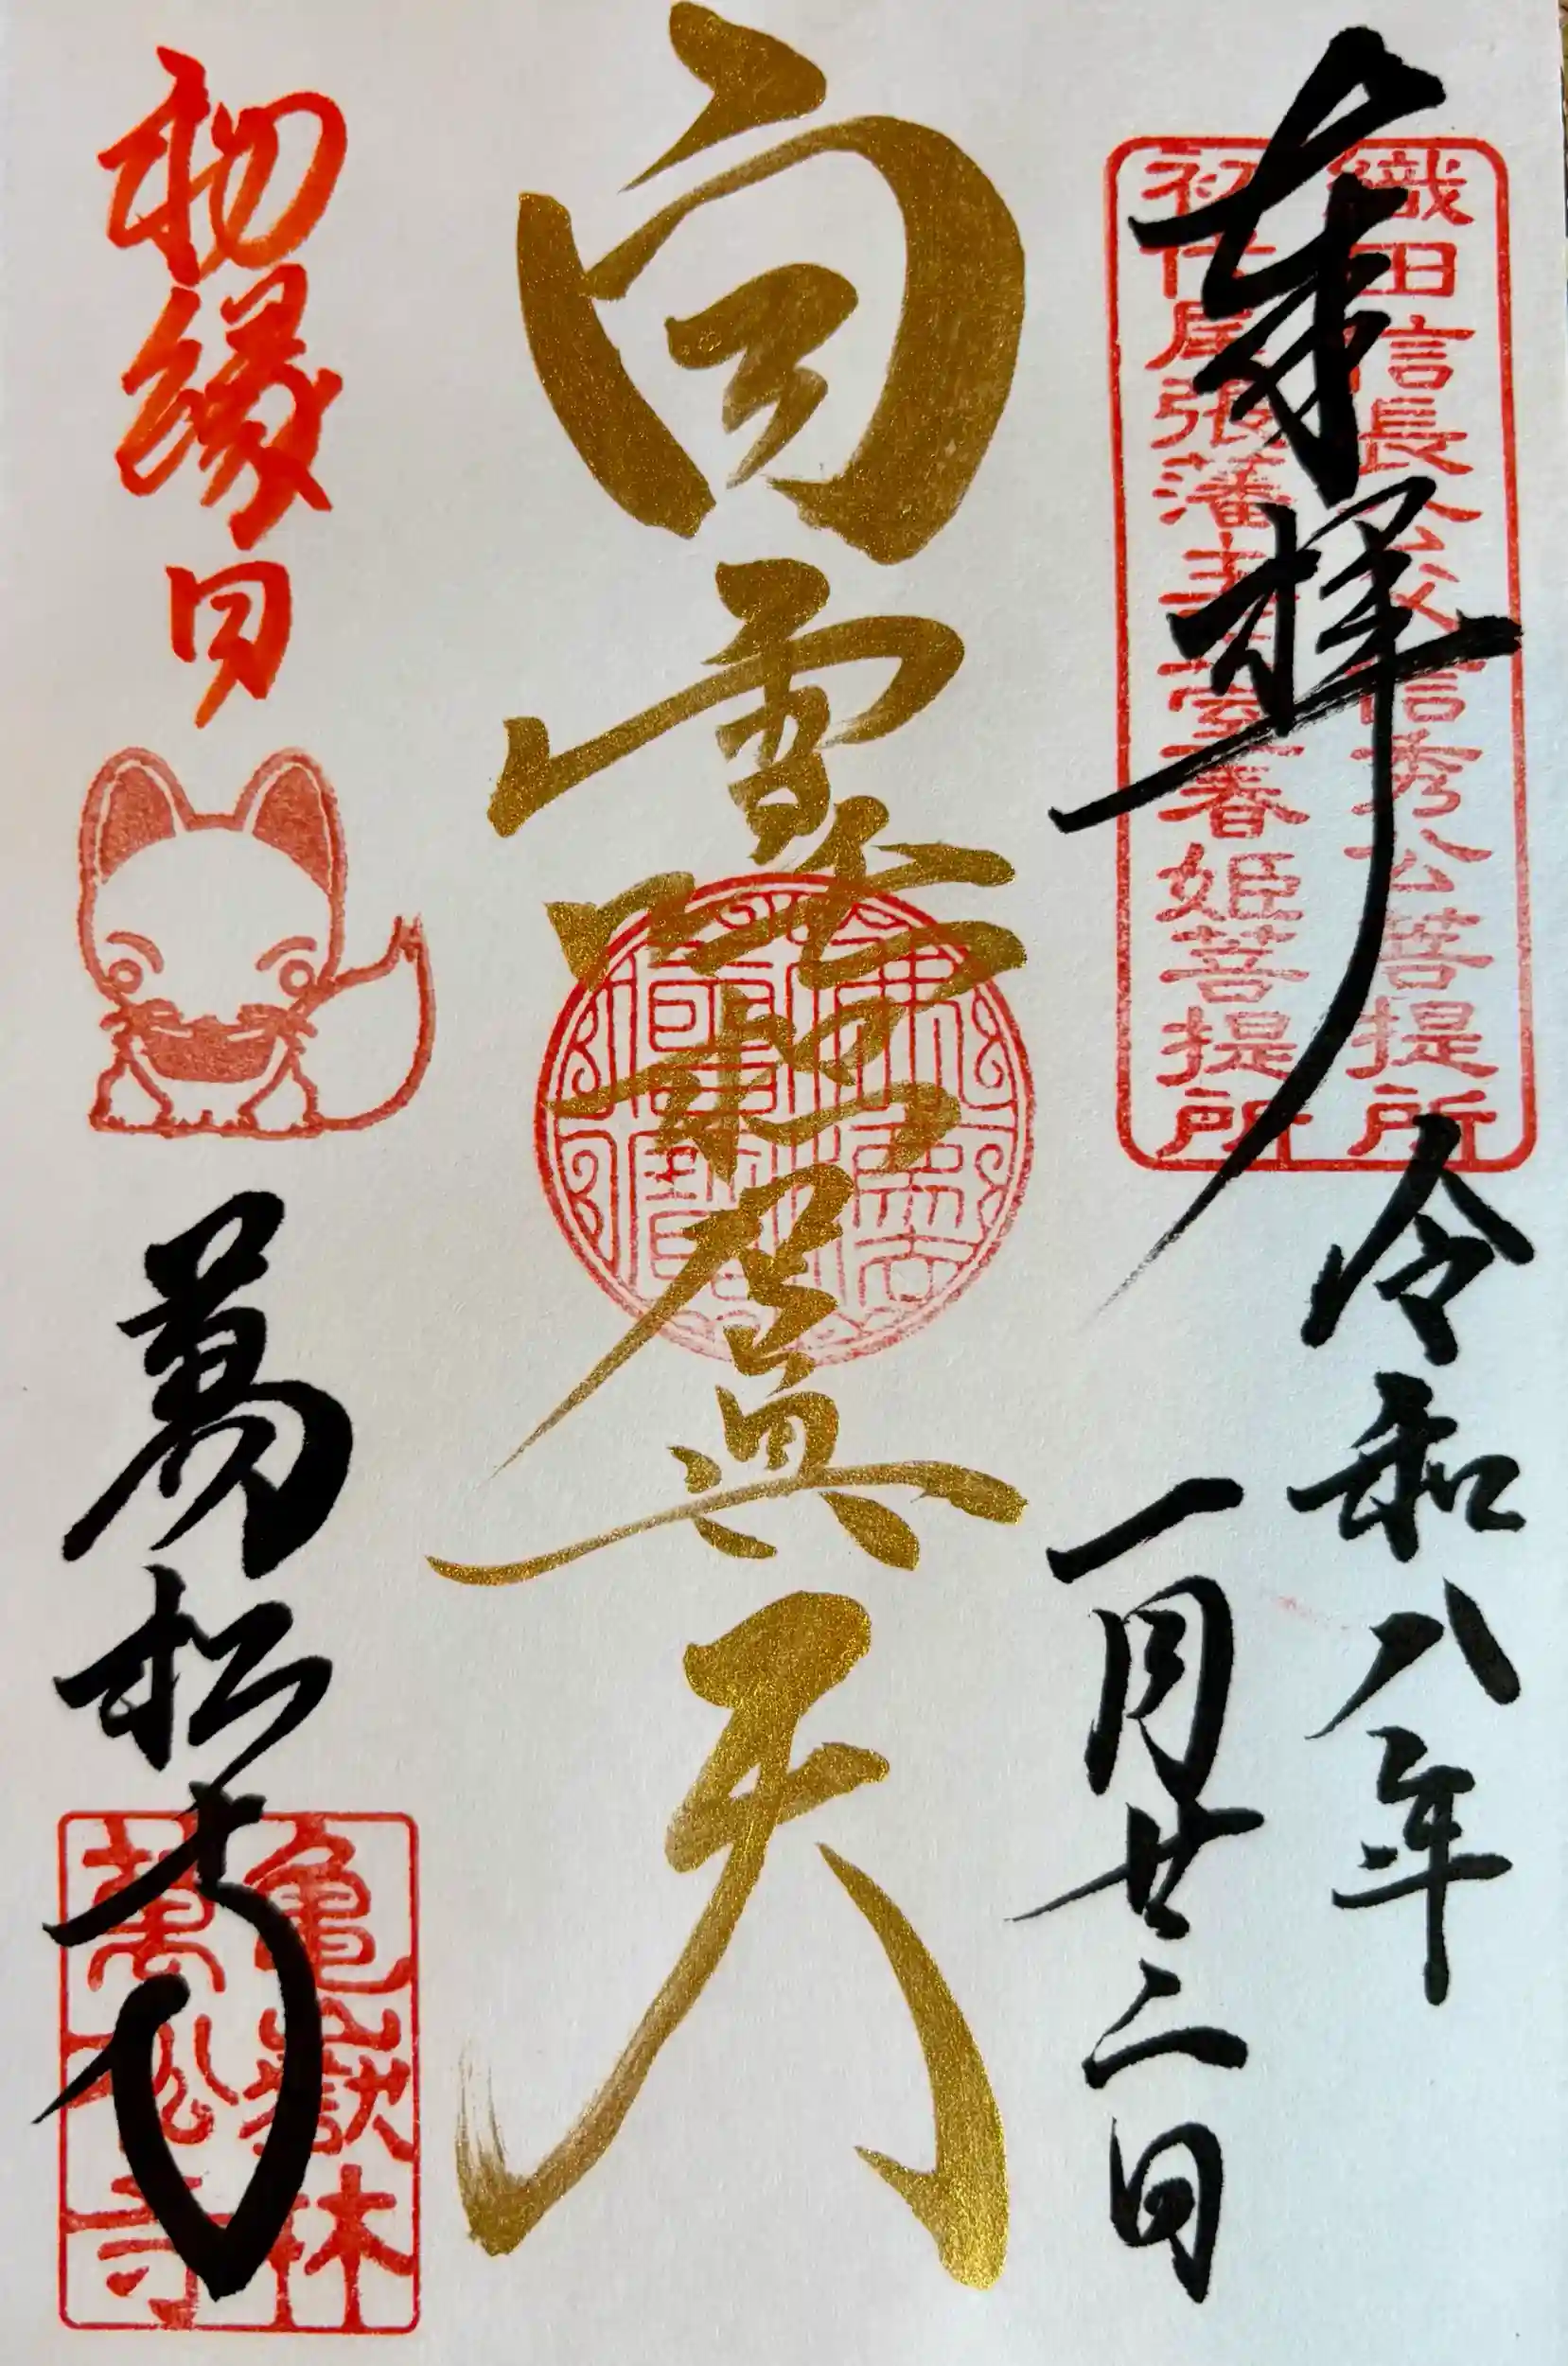 奉拝
織田信長公父信秀公菩提所
初代尾張藩主正室春姫菩提所
令和八年
一月廿二日
白雪稲荷眞天
初縁日
萬松寺
亀嶽林
萬松寺